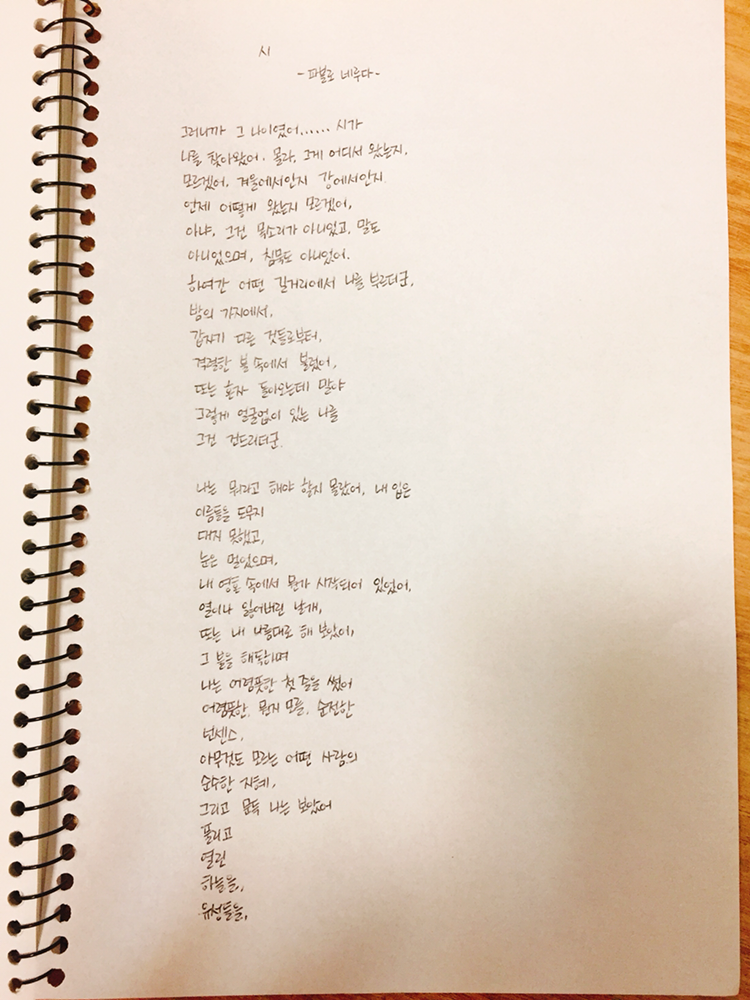 시
- 파블로 네루다 -
그러니까 그 나이였어...... 시가
나를 찾아왔어. 몰라, 그게 어디서 왔는지,
모르겠어, 겨울에서인지 강에서인지.
언제 어떻게 왔는지 모르겠어,
아냐, 그건 목소리가 아니었고, 말도
아니었으며, 침묵도 아니었어.
하여간 어떤 길거리에서 나를 부르더군,
밤의 가지에서,
갑자기 다른 것들로부터,
격렬한 불 속에서 불렀어,
또는 혼자 돌아오는데 말야
그렇게 얼굴없이 있는 나를
그건 건드리더군.
나는 뭐라고 해야 할지 몰랐어, 내 입은
이름들을 도무지
대지 못했고,
눈은 멀었으며,
내 영혼 속에서 뭔가 시작되어 있었어,
열이나 잃어버린 날개,
또는 내 나름대로 해 보았어,
그 불을 해독하며
나는 어렴풋한 첫 줄을 썼어
어렴풋한, 뭔지 모를, 순전한
넌센스,
아무것도 모르는 어떤 사람의
순수한 지혜,
그리고 문득 나는 보았어
풀리고
열린
하늘을,
유성들을,